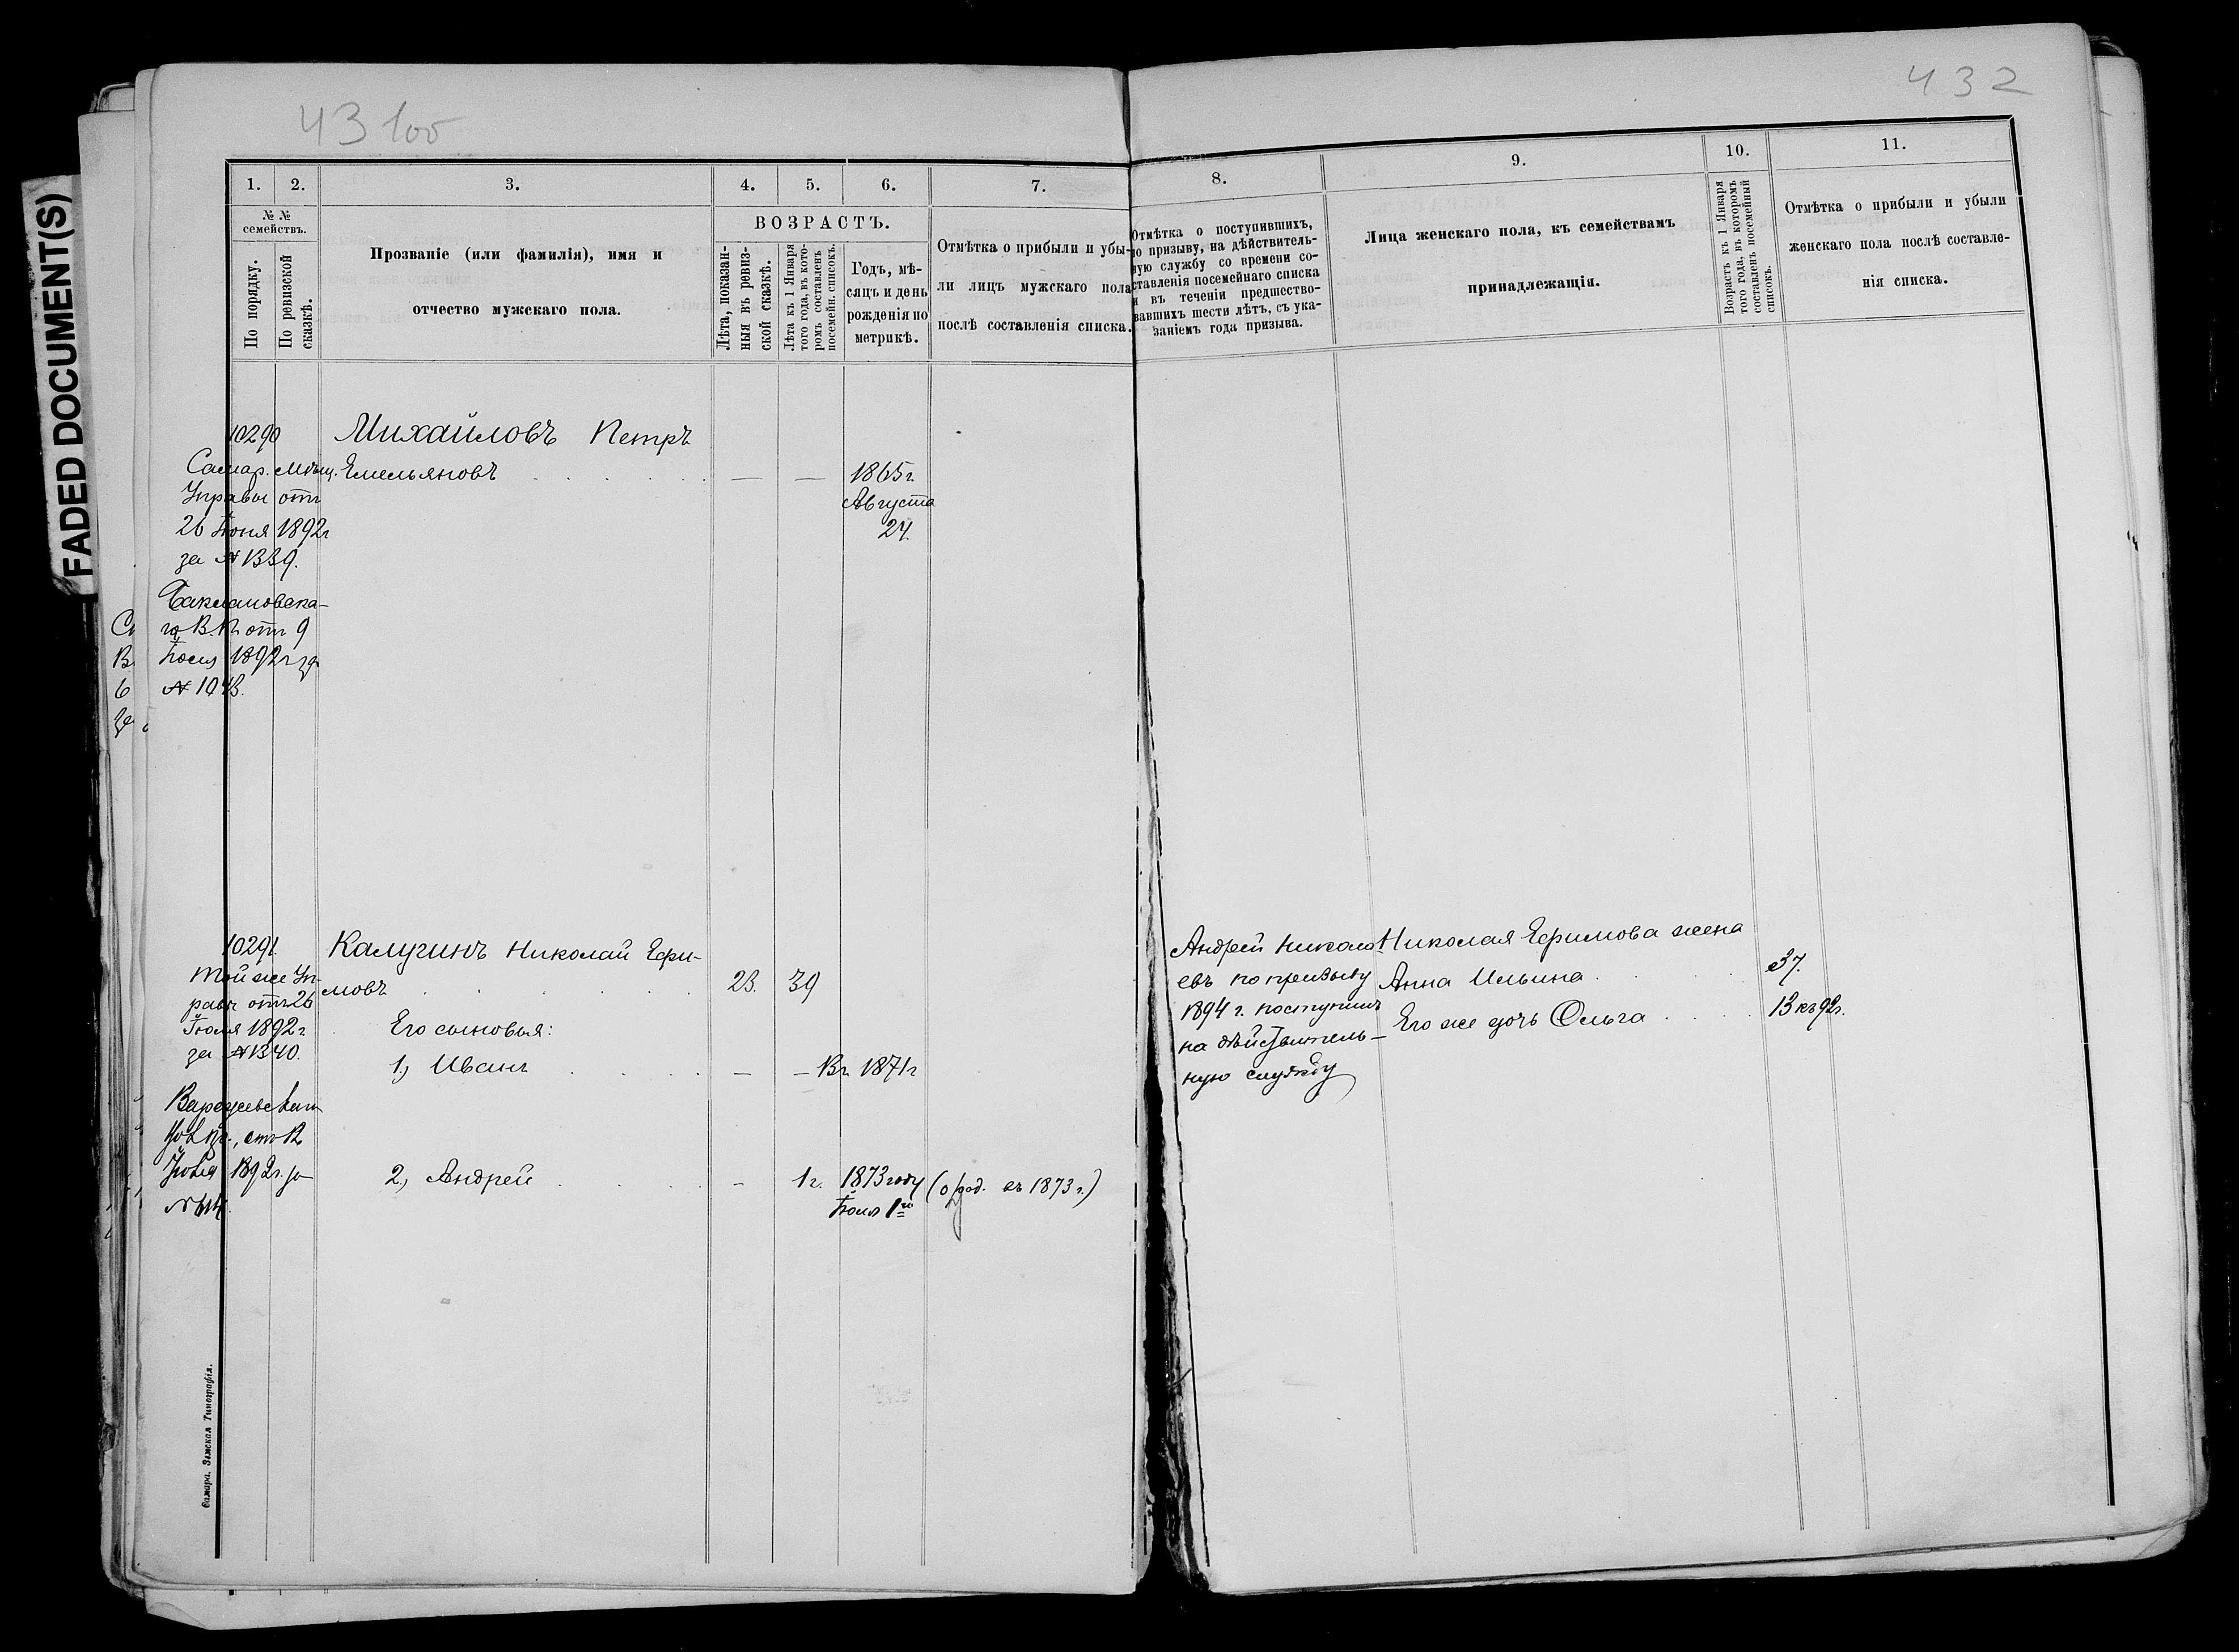 FADED DOCUMENT(S)
431об
432
1.
2.
3.
4.
5.
6.
7.
8.
9.
10.
11.
№ №
семействъ.
По порядку.
По ревизской
сказкѣ.
Прозваніе (или фамилія), имя и
отчество мужскаго пола.
ВОЗРАСТЪ.
Лѣта, показан-
ныя въ ревиз-
ской сказкѣ.
Лѣта къ 1 Января
того года, въ кото-
ромъ составленъ
посемейн. списокъ.
Годъ, мѣ-
сяцъ и день
рожденія по
метрикѣ.
Отмѣтка о прибыли и убы-
ли лицъ мужскаго пола
послѣ составленія списка.
Отмѣтка о поступившихъ,
по призыву, на дѣйствитель-
ную службу со времени со-
ставленія посемейнаго списка
и въ теченіи предшество-
вавшихъ шести лѣтъ, съ ука-
заніемъ года призыва.
Лица женскаго пола, къ семействамъ
принадлежащія.
Возрастъ къ 1 Января
того года, въ которомъ
составленъ посемейный
списокъ.
Отмѣтка о прибыли и убыли
женскаго пола послѣ составле-
нія списка.
10290
Самар. Мѣщ.
Управы отъ
26 Іюня 1892г
за № 1339.
го В. П. отъ 9
1892г за
Михайловъ Петръ
Емельяновъ — — 1865г.
Августа
24.
10291.
Той же Уп-
равы отъ 26
Іюня 1892г.
за № 1340.
1892г. за
Калугинъ Николай Ефи-
мовъ 23. 39
Его сыновья:
1, Иванъ — — Въ 1871г
2, Андрей - 1г. 1873 году (о/род. въ 1873 г.)
Іюля 1го
Андрей Никола-
евъ по призыву
1894 г. поступилъ
на дѣйствитель-
ную службу
Николая Ефимова жена
Анна Ильина 37.
Его же дочь Ольга 13 къ 92г.
Самара. Земская Типографія.